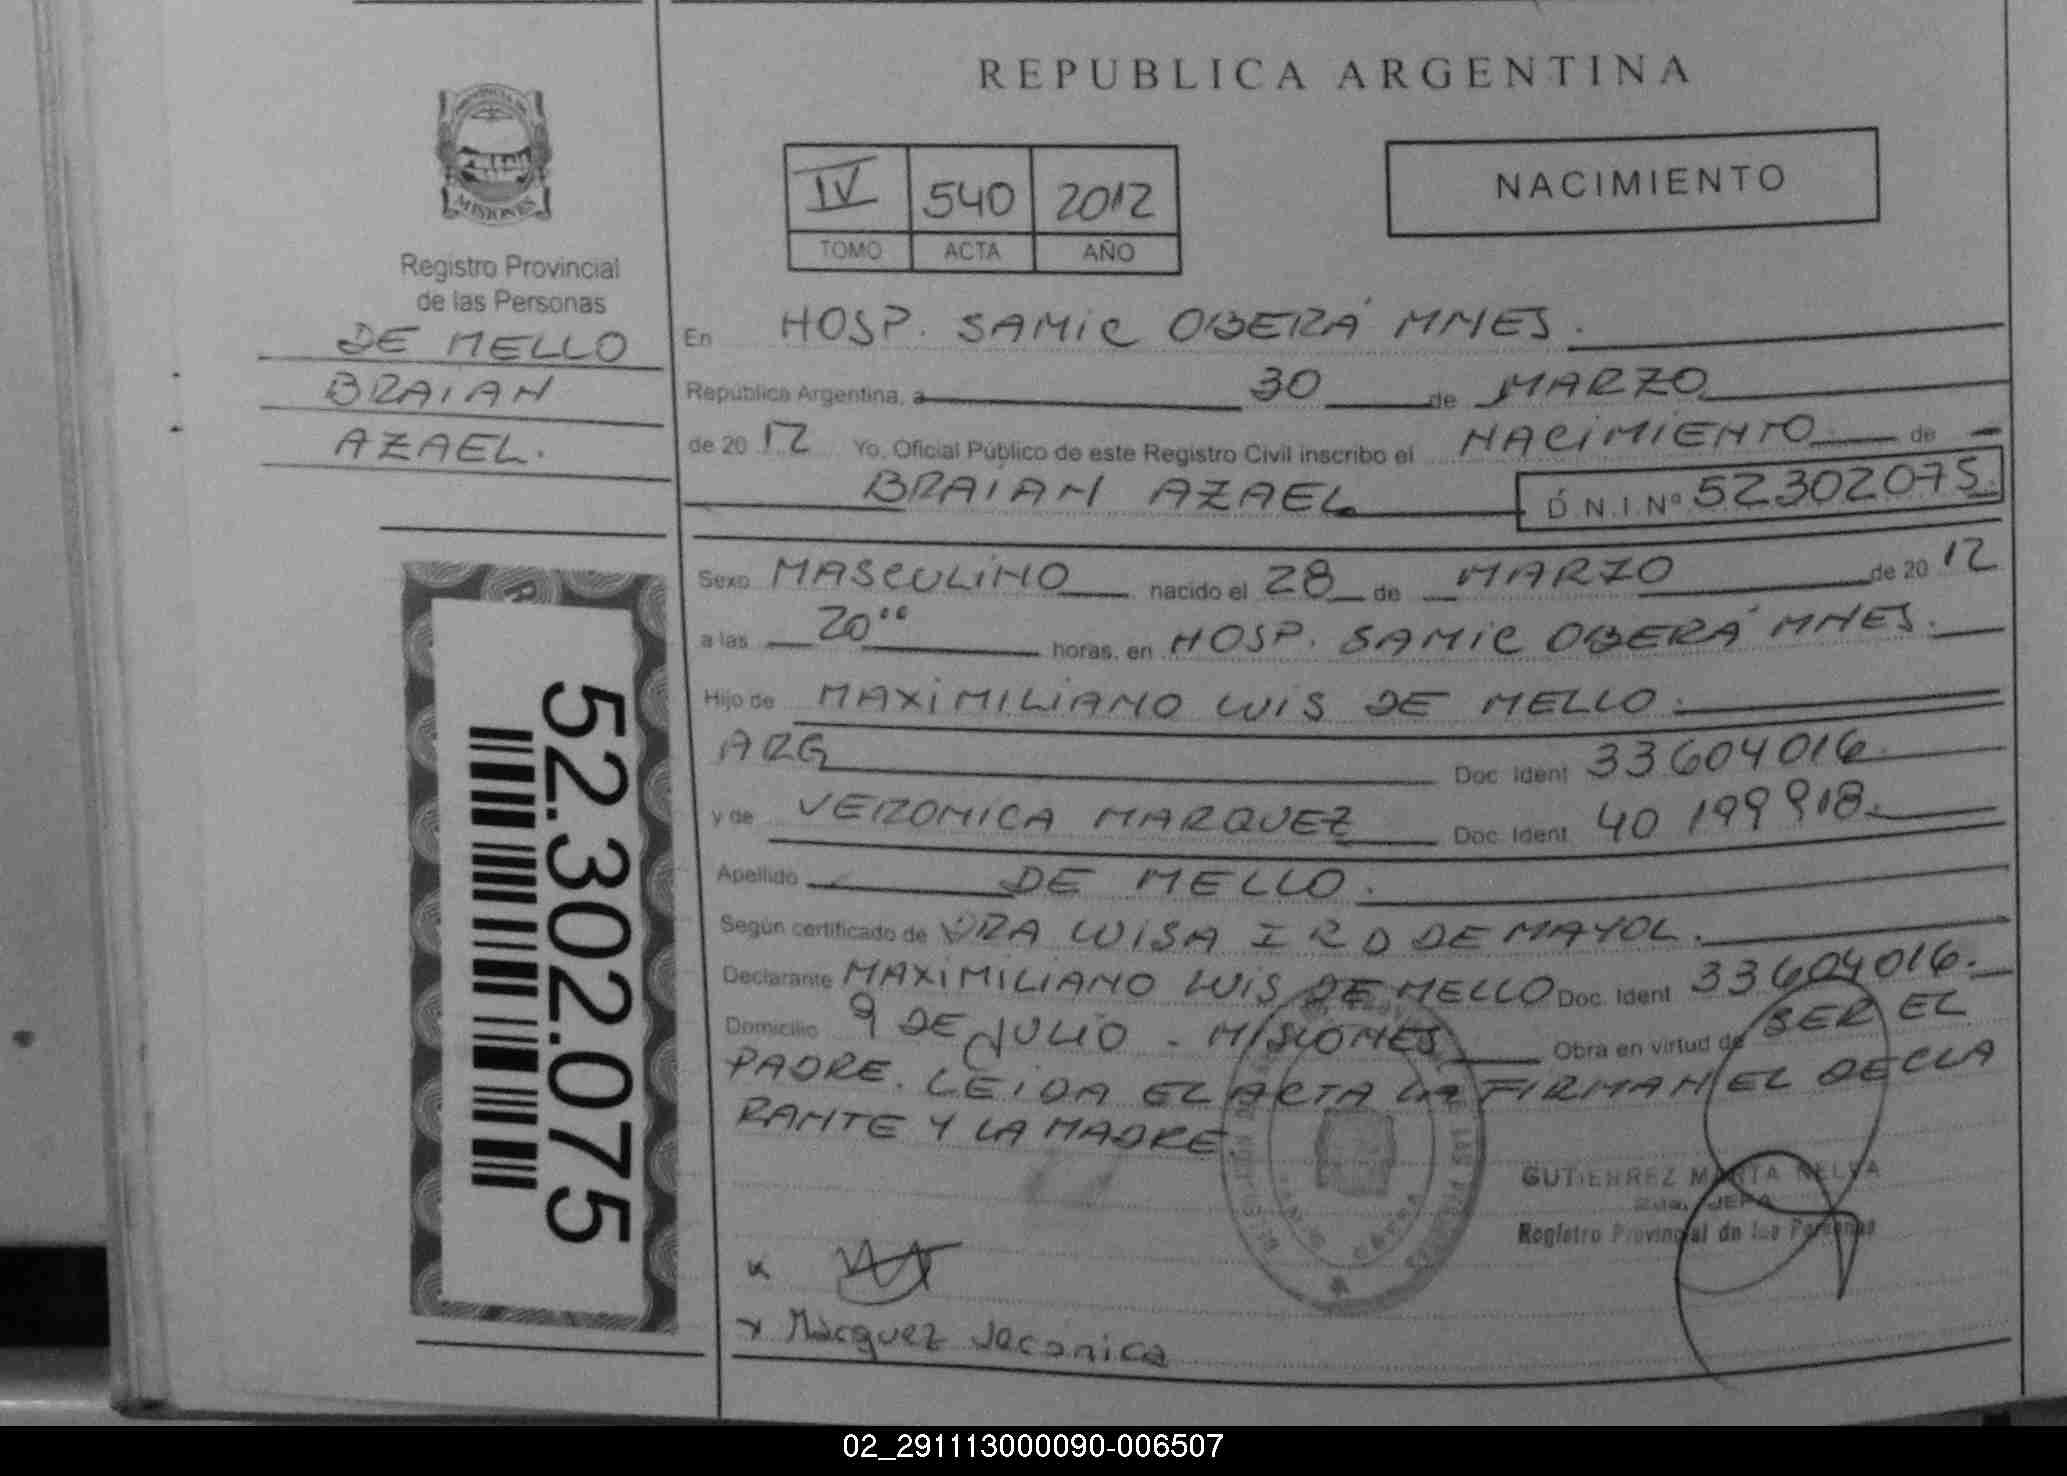 REPUBLICA ARGENTINA
PROVINCIA DE
MISIONES
Registro Provincial
de las Personas
DE MELLO
BRAIAN
AZAEL.
52.302.075
IV 540 2012
TOMO ACTA AÑO
NACIMIENTO
En HOSP. SAMIC OBERÁ MNES.
República Argentina, a 30 de MARZO
de 2012 Yo, Oficial Público de este Registro Civil inscribo el NACIMIENTO de
BRAIAN AZAEL D.N.I. Nº 52302075.
Sexo MASCULINO nacido el 28 de MARZO de 2012
a las 20°° horas, en HOSP. SAMIC OBERÁ MNES.
Hijo de MAXIMILIANO LUIS DE MELLO.
ARG Doc. Ident 33604016.
y de VERONICA MARQUEZ Doc. Ident. 40 199918.
Apellido DE MELLO.
Según certificado de DRA LUISA I R D DE MAYOL.
Declarante MAXIMILIANO LUIS DE MELLO Doc. Ident 33604016.
Domicilio 9 DE JULIO - MISIONES Obra en virtud de SER EL
PADRE. LEIDA EL ACTA LA FIRMAN EL DECLA
RANTE Y LA MADRE.
GUTIERREZ MARTA NELSA
JEFA
Registro Provincial de las Personas
x
x Marquez Veronica
02_291113000090-006507